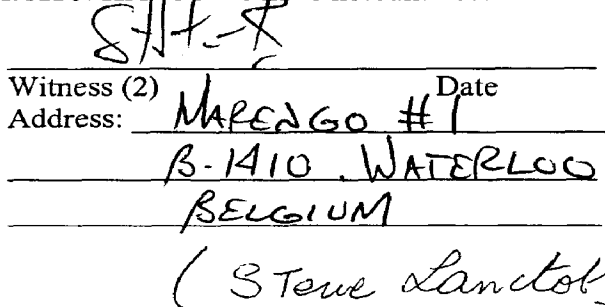 Witness (2) Date
Address: MARENGO #1
B-1410. WATERLOO
BELGIUM
( Steve Lanctot